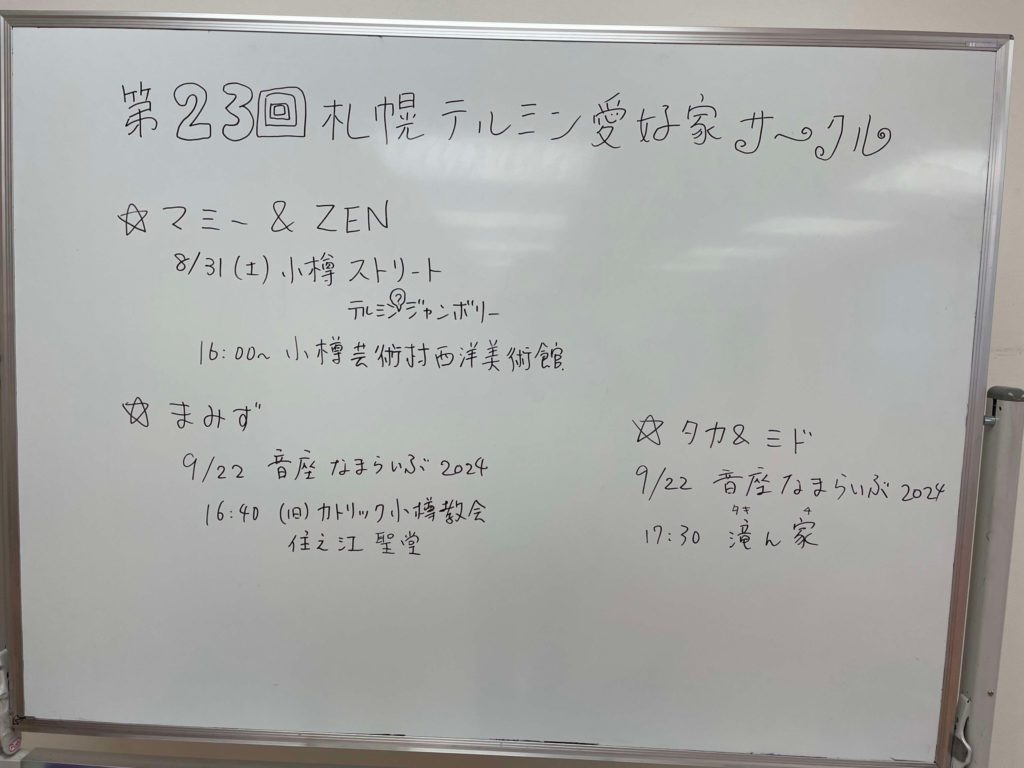 第23回 札幌テルミン愛好家サークル
☆ マミー & ZEN
8/31(土) 小樽 ストリート
テルミンジャンボリー
16:00~ 小樽芸術村西洋美術館
☆ まみず
9/22 音座なまらいぶ 2024
16:40 (旧)カトリック小樽教会
住之江 聖堂
☆ タカ & ミド
9/22 音座なまらいぶ 2024
タキ チ
17:30 滝ん家